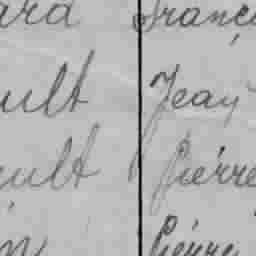 ara Franç
ult Jean
ult Pierre
Pierre